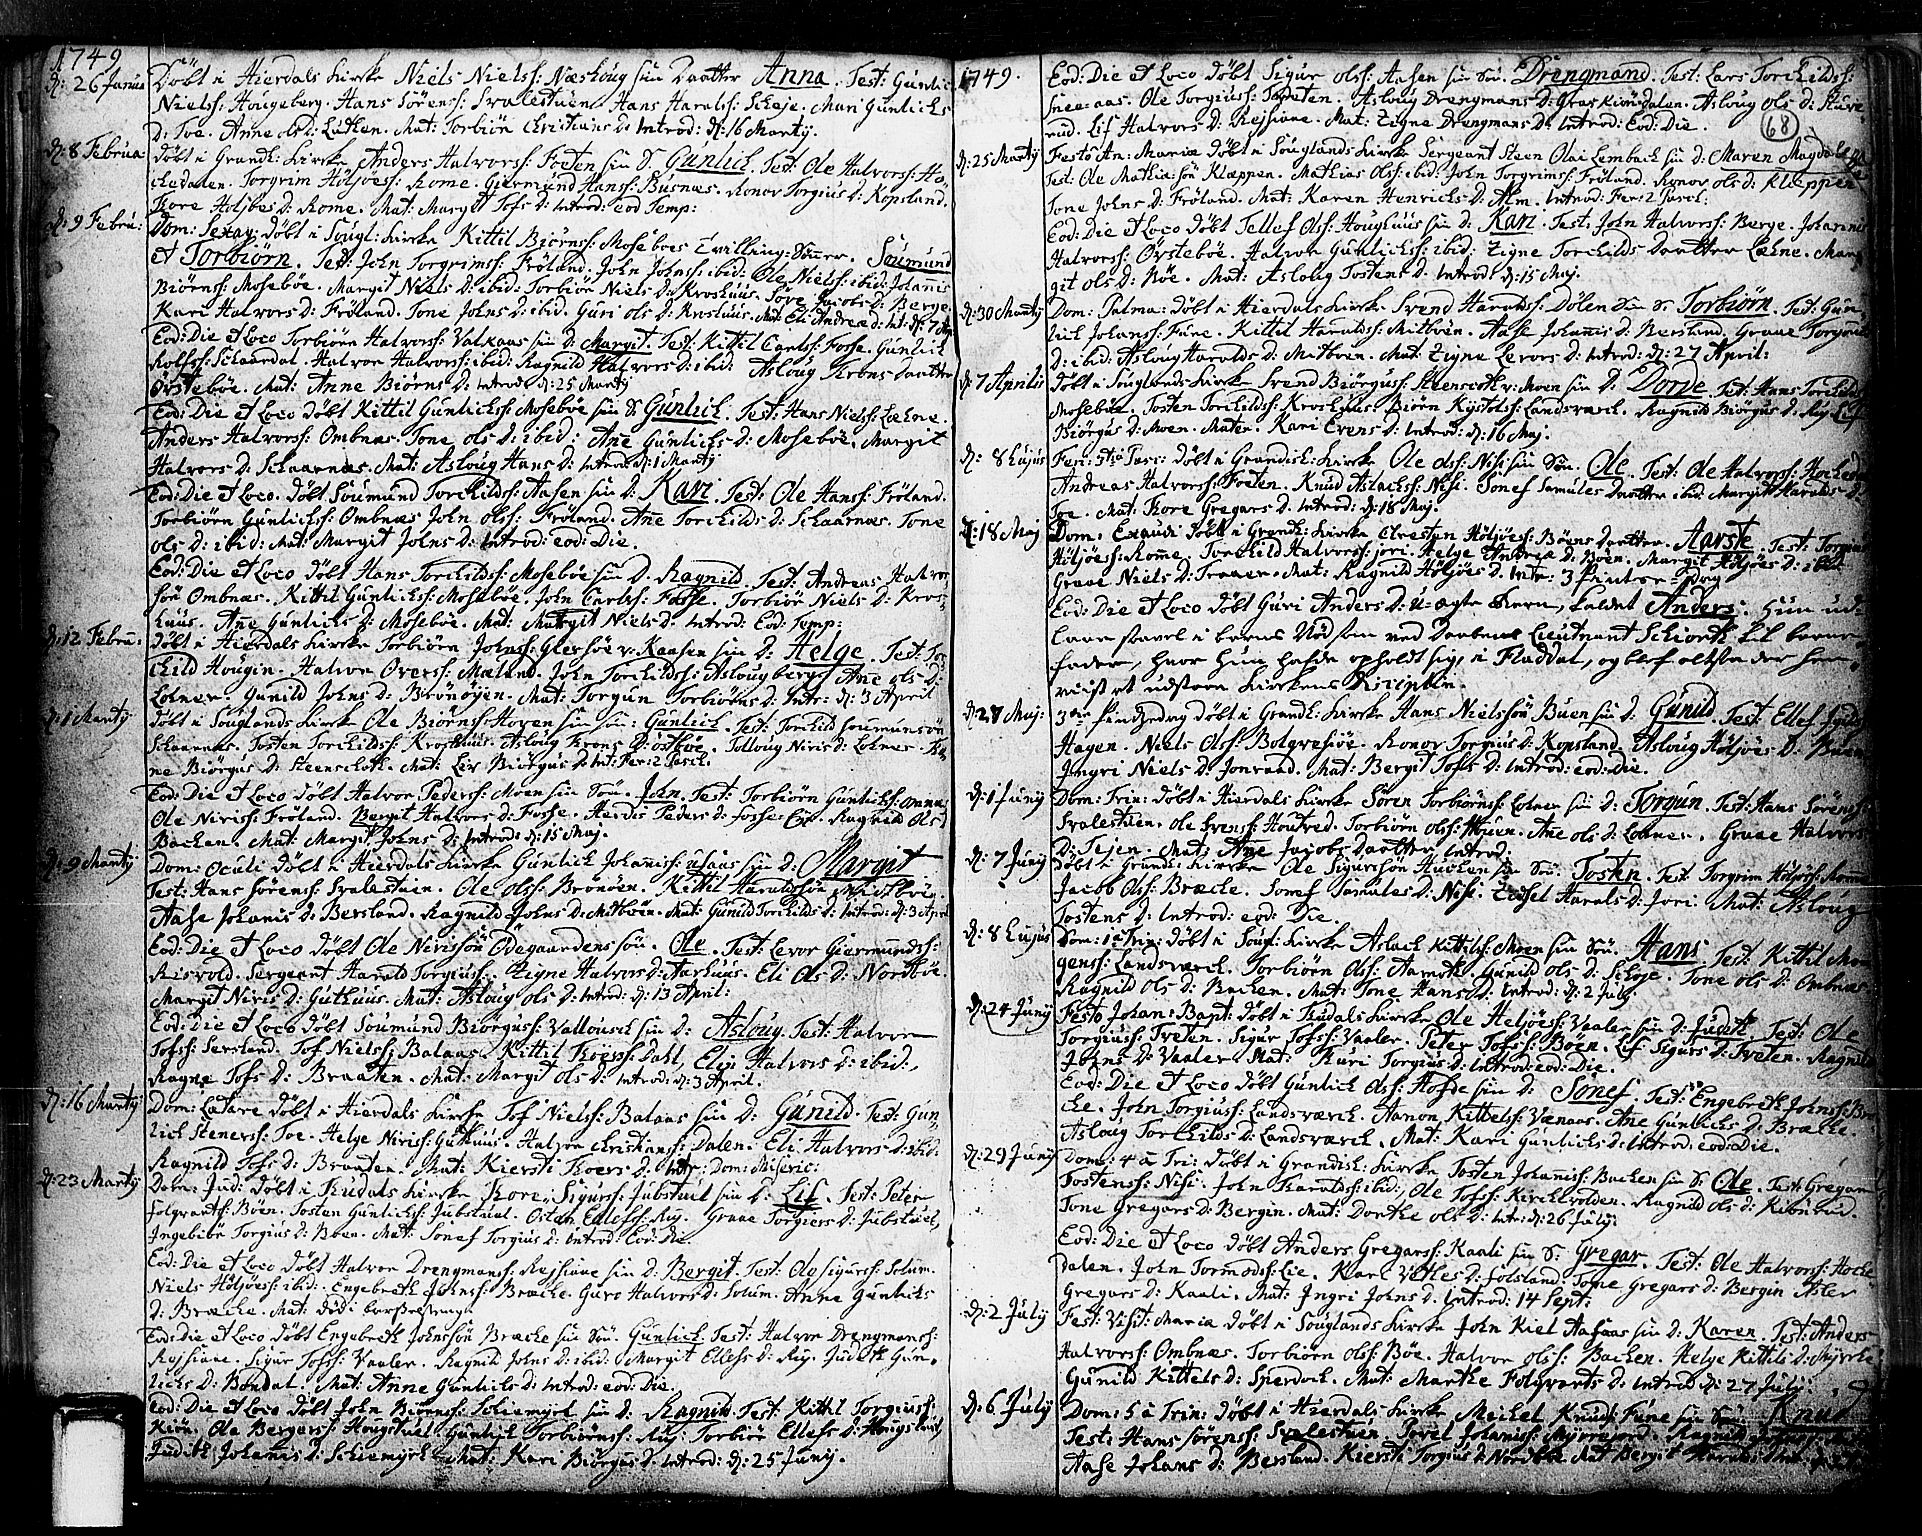 1749
d: 26 Janua Döbt i Hierdals Kirke Niels Nielss: Næshoug sin Daatter Anna. Test: Gunlic
Nielss: Hougeberg. Hans Sörenss: Svalestuen. Hans Haralss: Scheje. Mari Gunlichs
D: Toe. Anne ols d: Ludken. Mat: Torbiön Christians D: Introd: d: 16 Martij.
d: 8 Februa Döbt i Grandk: Kirke Anders Halvorss: Foeten sin S. Gunlich. Test: Ole Halvorss: Ho
chedalen. Torgrim Höljöess: Rome. Giermund Hanss: Busnæs. Ronov Torgius D: Kopsland.
Tore Höljöes D: Rome. Mat: Margit Tofs D: Introd: eod Temp:
d: 9 Febru: Dom: Sexag: döbt i Sougl: Kirke Kittil Biörnss: Moseböes Tvilling-Sönner. Soumund
et Torbiörn. Test: John Torgrimss: Fröland, John Johnss: ibid: Ole Nielss: ibid: Johannis
Biörnss: Moseböe. Margit Niels D: ibid: Torbiör Niels D: Kroshuus. Tore Jacobs D: Berge.
Kari Halvors D: Fröland. Tone Johns D: ibid. Guri ols D: Kroshuus. Mat: Eli Andreæ d: Int: d: 7
Eod: Die et Loco Torbiörn Halvorss: Valkaas sin D: Margit. Test: Kittil Carlss: Fosse. Gunlich
Rolfss: Schaardal. Halvor Halvorss: ibid: Ragnild Halvors D: ibid: Asloug Trons Daatter
Örsteböe. Mat: Anne Biörns D: Introd d: 25 Martij
Eod: Die et Loco döbt Kittil Gunlichss: Moseböe sin S. Gunlich. Test: Hans Nielss: Løchne.
Anders Halvorss: Ombnæs. Tone ols D: ibid: Ane Gunlichs D: Moseböe. Margit
Halvors D: Schaarnæs. Mat: Asloug Hans D: Introd: d: 1 Martij
Eod: Die et Loco. Döbt Soumund Torchildss: Aasen sin D. Kari. Test: Ole Hanss: Fröland.
Torbiörn Gunlichss: Ombnæs John olss: Fröland. Ane Torchilds D: Schaarnæs. Tone
ols D: ibid: Mat: Margit Johns D: Introd: eod: Die.
Eod: Die et Loco döbt Hans Torchildss: Moseböe sin D. Ragnild. Test: Andreas Halvor
sön Ombnæs. Kittil Gunlichss: Moseböe. John Carlss: Fosse. Torbiör Niels D: Kros-
huus. Ane Gunlichs D: Moseböe. Mat: Margit Niels D: Introd: Eod: Temp:
d: 12 Febru: Döbt i Hierdals Kirke Torbiörn Johnss: Glersöe v: Kaasen sin D: Helge. Test: Tor
child Hougin. Halvor Overss: Mæland. John Torchildss: Aslougberg. Ane ols D:
Lohner. Gunild Johns D: Brönöjen. Mat: Torgun Torbiörns D: Intr: d: 3 April
d: 1 Martij Döbt i Souglands Kirke Ole Biörnss: Hoven sin Sön: Gunlich. Test: Torchild Soumunsön
Schaarnæs. Tosten Torchildss: Kroshuus. Asloug Trons D: Östböe. Tolloug Niris D: Lohner.
ne Biörgus D: Steenschoth. Mat: Liv Biörgus D: Int: Fer: 2 Pasch.
Eod: Die et Loco Döbt Halvor Pederss: Moen sin Sön. John. Test: Torbiörn Gunlichss: Omnæs
Ole Niriss: Fröland. Bergit Halvors D: Fosse. Herdis Peders D: Fosse. Ragnild Ols
Bachen. Mat: Margit Johns D: Introd: d: 15 Maj.
d: 9 Martij Dom: Oculi döbt i Hierdals Kirke Gunlich Johaniss: Utaas sin D: Margit
Test: Hans Sörenss: Svalestuen. Ole olss: Bronöen. Kittil Haraldssön Midtböe.
Aase Johanis D: Bersland. Ragnild Johns D: Mitböen. Mat: Gunild Torchilds D: Introd: d: 3 April
Eod: Die et Loco döbt Ole Nirissön Ödegaardens sön. Ole. Test: Levor Giermundss:
Risvold. Sergeant Harald Torgiuss: Zigne Halvors D: Aarhuus. Eli Ols D: Nordböe.
Margit Niris D: Guthuus. Mat: Asloug ols D: Introd: d: 13 April:
Eod: Die et Loco döbt Soumund Biörguss: Vallousch sin D: Asloug. Test: Halvor
Tofss: Sersland. Tof Nielss: Balaas. Kittil Thöerss: Dahl, Elin Halvors D: ibid:
Ragne Tofs D: Braaten. Mat: Margit Ols D: Introd: d: 3 April.
d: 16 Martij Dom: Lætare döbt i Hierdals Kirke Tof Nielss: Balaas sin D: Gunild. Test: Gun
lich Stenerss: Toe. Helge Niriss: Guthuus. Halvor Christianss: Dalen. Eli Halvors D: ibid:
Ragnild Tofs D: Braaten. Mat: Kiersti Thoers D: Intr: Dom: Miseric:
d: 23 Martij Dom: Jud: döbt i Thudals Kirke Thore Sigurss: Jubstuel sin D: Lif. Test: Peter
Folgvartss: Böen. Tosten Gunlichss: Jubstuel. Osten Ellefss: Ruj. Grave Torgiers D: Jubstuel,
Ingebiör Torgius D: Böen. Mat: Sonef Torgius D: Introd: Eod: Die
Eod: Die et Loco döbt Halvor Drengmanss: Rejsjane sin D: Bergit. Test: Ole Sigurss: Solum.
Niels Höljöess: ibid: Engebreth Johnss: Bræche. Guro Halvors D: Solum. Anne Gunlichs
D: Bræche. Mat: död i Barsselseng
Eod: Die et Loco döbt Engebreth Johnssön Bræche sin Sön. Gunlich. Test: Halvor Drengmanss:
Rejsiane. Sigur Tofss: Vaaler. Ragnild Johns D: ibid: Margit Ellefs D: Ruj. Judeth Gun-
lichs D: Bondal. Mat: Anne Gunlichs D: Introd: eod: Die.
Eod: Die et Loco döbt John Biörnss: Schiemyrl sin D: Ragnild. Test: Kittil Torgiuss:
Kiön. Ole Bergerss: Hougstuel. Gunlich Torbiörnss: Ruj. Torbiör Ellefs D: Hougstuel
Judeth Johanis D: Schiemyrl. Mat: Kari Biörgus D: Introd: d: 25 Junij.
1749.
68
Eod: Die et Loco döbt Sigur olss: Aasen sin Sön. Drengmand. Test: Lars Torchildss:
Snee-aas. Ole Torgiuss: Tveten. Asloug Drengmans D: Graskiönsdalen. Asloug ols D: Rure-
rud. Lif Halvors D: Rejsiane. Mat: Zigne Drengmans D: Introd: Eod: Die.
d: 25 Martij Festo An: Mariæ döbt i Souglands Kirke Sergeant Steen Olai Lembach sin D: Maren Magdalena
Test: Ole Mathiæsön Klæppen. Mathias Olss: ibid: John Torgrimss: Fröland. Ronov ols D: Klæppen
Tone Johns D: Fröland. Mat: Karen Henrichs D: Alm. Introd: Fer: 2 Pasch:
Eod: Die et Loco döbt Tellef Olss: Houghuus sin D: Kari. Test: John Halvorss: Berge. Johannis
Halvorss: Örsteböe. Halvor Gunlichss: ibid: Zigne Torchilds Daatter Løchne. Mar-
git ols D: Nöe. Mat: Asloug Tostens D: Introd: d: 15 Maj.
d: 30 Martij Dom: Palma: döbt i Hierdals Kirke Svend Haraldss: Dölen sin S: Torbiörn. Test: Gun
lich Johanss: Fune. Kittil Haraldss: Mitböen. Aase Johanis D: Bersland. Graae Torgrims
D: ibid: Asloug Haralds D: Mitboen. Mat: Zigne Levors D: Introd: d: 27 April:
d: 7 Aprilis Döbt i Souglands Kirke Svend Biörguss: Steenscoth v: Moen sin D: Dorde. Test: Hans Torchilds
Moseböe. Tosten Torchildss: Kroshuus. Biörn Kystolss: Landsværch. Ragnild Biörgus D: Ruj. Lif
Biörgus D: Moen. Mater. Kari Evens D: Introd: d: 16 Maj.
d: 8 Eujus Feri: 3tiæ Pasc: döbt i Grandsh: Kirke Ole Olss: Nisi sin Sön. Ole. Test: Ole Halvorss: Hochedal
Andreas Halvorss: Foeten. Knud Aslachss: Nisi. Sonef Samules Daatter ibid. Margit Haralds D:
Toe. Mat: Thore Gregars D: Introd: d: 18 Maj.
d: 18 Maj Dom: Exaudi döbt i Grandk: Kirke Chresten Höljöess: Böens Daatter. Aarste. Test: Torgius
Höljöess: Rome. Torchild Halvorss: Jori. Helge Andreæ D. Böen. Margit Höljöes D: ibid:
Graae Niels D: Traaer. Mat: Ragnild Höljöes D. Intr: 3 Pintse-Dag
Eod: Die et Loco döbt Guri Anders D: U-ægte Barn, kaldet Anders. Hun ud-
lagde saavel i barns Nöd som ved Daaben Lieutnant Schiorth til barne-
fader, hvor hun hafde opholdt sig, i Fladdal, og blef
vist at udstaae Kirkens Disciplin.
d: 27 Maj: 3die Pindzedag döbt i Grandk: Kirke Hans Nielssön Buen sin D: Gunild. Test: Ellef
Hagen. Niels Olss: Bolgvesjöe. Ronov Torgius D: Kopsland. Asloug Höljöes D: Buen
Jngri Niels D: Jonraad. Mat: Bergit Tofs D: Introd: eod: Die.
d: 1 Junij Dom: Trin: döbt i Hierdals Kirke Sören Torbiörnss: Lohner sin D: Torgun. Test: Hans Sörenss:
Svalestuen. Ole Svenss: Houtved. Torbiörn Olss: Houen. Ane ols D: Lohner. Graae Halvors
D: Tejen. Mat: Ane Jacobs Daatter Introd:
d: 7 Junij Döbt i Grandk: Kircke Ole Sigurssön Huchen sin Sön Tosten. Test: Torgrim Höljöss: Romme
Jacob Olss: Bræche. Sonef Samules D: Nisi. Haralds D: Jori. Mat: Asloug
Tostens D: Introd: eod: Die.
d: 8 Eujus Dom: 1 a Trin: döbt i Sougl: Kirke Aslach Kittilss: Moen sin Sön. Hans. Test: Kittil Mo-
genss: Landsværch. Torbiörn Olss: Aamoth. Gunild ols D: Schoje. Tone ols D: Ombnæs
Ragnild ols D: Bachen. Mat: Tone Hans D: Introd: d: 2 July
d: 24 Junij Festo Johan: Bapt: döbt i Thudals Kirke Ole Heljöess: Vaaler sin D. Judeth. Test: Ole
Torgiuss: Tveten. Sigur Tofss: Vaaler. Peter Tofss: Böen. Lif Sigurs D: Tveten. Ragnild
Johns D: Vaaler. Mat: Thuri Torgius D: Introd: eod: Die.
Eod: Die et Loco döbt Gunlich Olss: Hofde sin D: Sönef. Test: Engebreth Johnss: Bræ
che. John Torgiuss: Landsværch. Aanon Kittelss: Vænaas. Ane Gunlichs D: Bræche.
Asloug Torchilds D: Landsværch. Mat: Kari Gunlichs D: Introd: eod: Die.
d: 29 Junij Dom: 4 a Tri: döbt i Grandsh: Kirke Tosten Johaniss: Bachen sin S: Ole. Test: Gregar
Tostenss: Nisi. John Haraldss: ibid: Ole Tofss: Kirchevolden. Ragnild ols D: Kibnerud.
Tone Gregars D: Bergin. Mat: Dorthe ols D: Intr: d: 26 July:
Eod: Die et Loco döbt Anders Gregarss: Kaali sin S: Gregar. Test: Ole Halvorss: Hoche
dalen. John Tormodss: Lie. Kari Vetles D: Folsland. Tone Gregars D: Bergin. Asler
Gregars D: Kaali. Mat: Jngri Johns D. Introd: 14 Sept:
d: 2 July Fest: Visit: Mariæ döbt i Souglands Kirke John Kiel Aasaas sin D: Karen. Test: Anders
Halvorss: Ombnæs. Torbiörn Olss: Böe. Halvor olss: Bachen. Helge Kittils D: Myrche
Gunild Kittels D: Sperdoch. Mat: Marthe Folgvarts D: Introd: d: 27 July:
d: 6 July Dom: 5 a Trin: döbt i Hierdals Kirke Michel Knuds: Fune sin Sön: Knud
Test: Hans Sörenss: Svalestuen. Povel Johaniss: Myrregord. Ragnild
Aase Johans D: Bersland. Kiersti Torgius D: Nordböe. Mat: Bergit Haralds